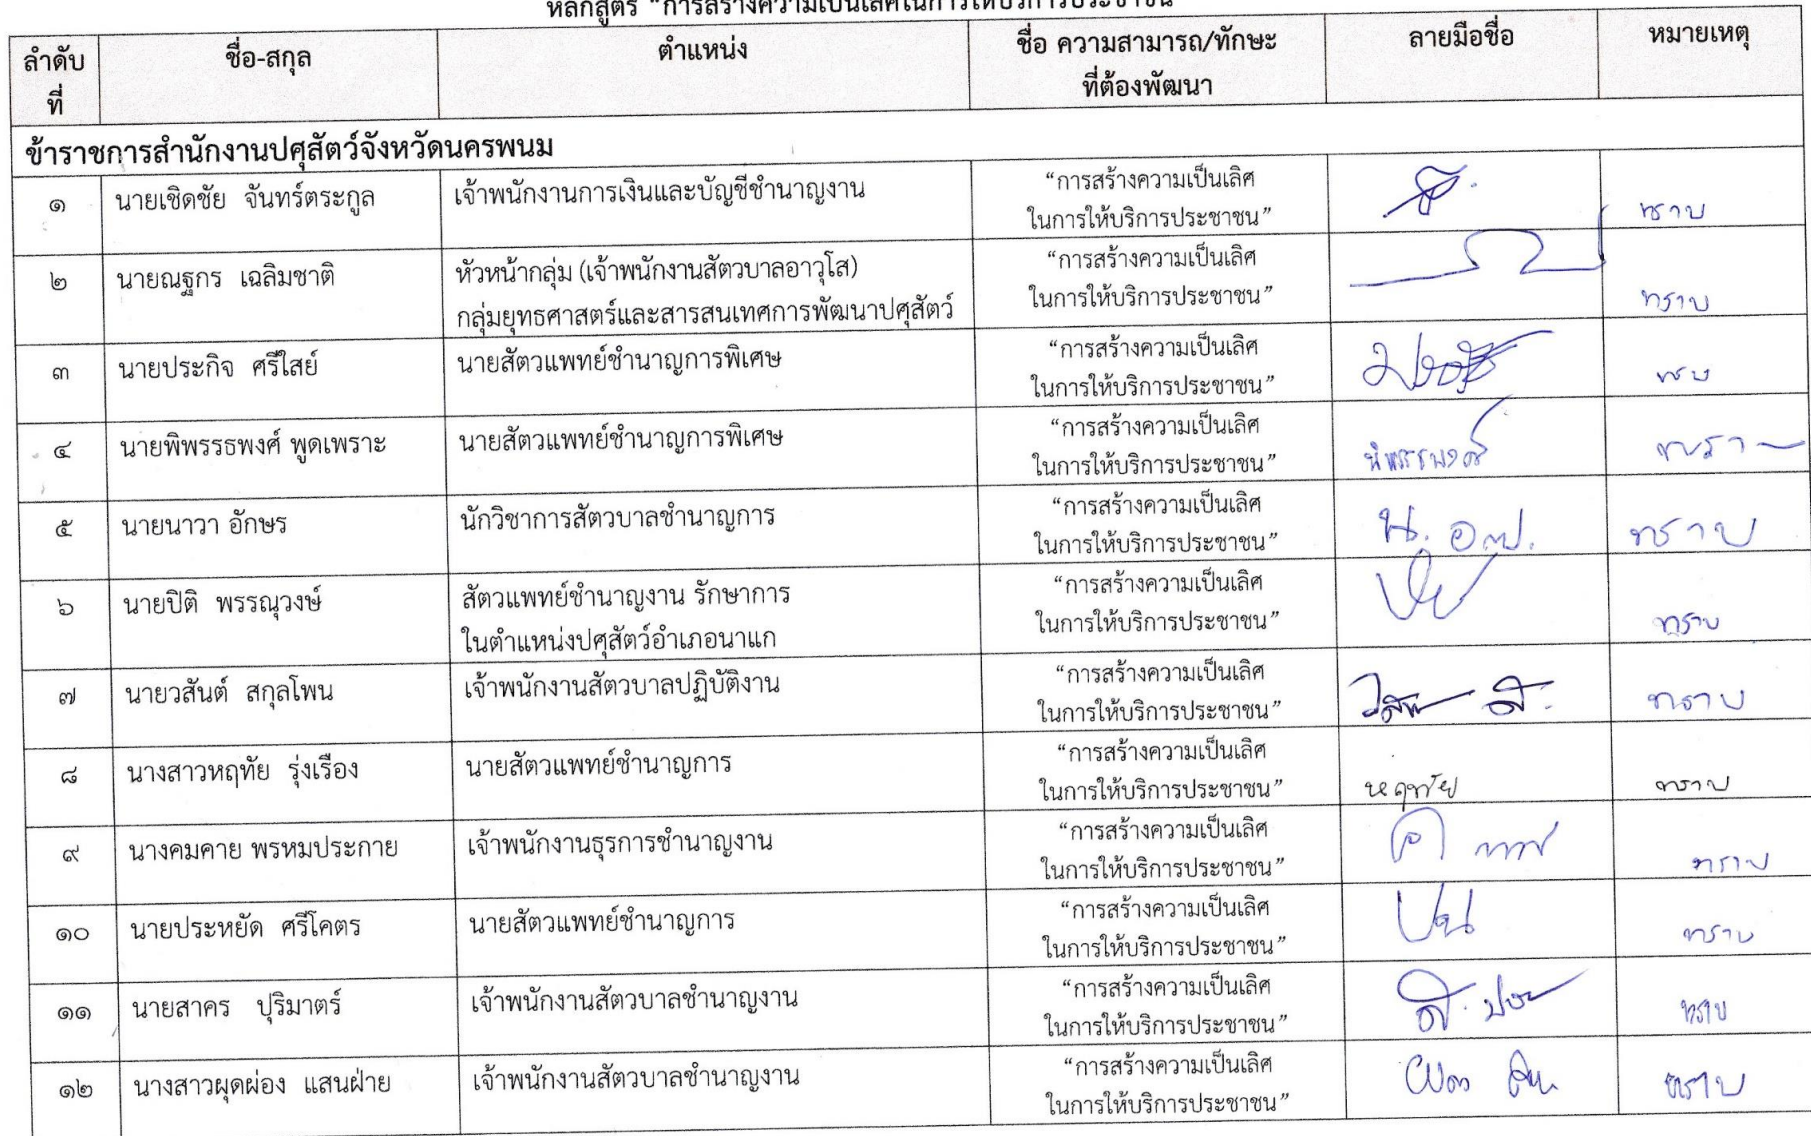 หลักสูตร “การสร้างความเป็นเลิศในการให้บริการประชาชน”
ลำดับ ชื่อ-สกุล ตำแหน่ง ชื่อ ความสามารถ/ทักษะ ลายมือชื่อ หมายเหตุ
ที่ ที่ต้องพัฒนา
ข้าราชการสำนักงานปศุสัตว์จังหวัดนครพนม
๑ นายเชิดชัย จันทร์ตระกูล เจ้าพนักงานการเงินและบัญชีชำนาญงาน “การสร้างความเป็นเลิศ
ในการให้บริการประชาชน” ทราบ
๒ นายณฐกร เฉลิมชาติ หัวหน้ากลุ่ม (เจ้าพนักงานสัตวบาลอาวุโส) “การสร้างความเป็นเลิศ
กลุ่มยุทธศาสตร์และสารสนเทศการพัฒนาปศุสัตว์ ในการให้บริการประชาชน” ทราบ
๓ นายประกิจ ศรีใสย์ นายสัตวแพทย์ชำนาญการพิเศษ “การสร้างความเป็นเลิศ
ในการให้บริการประชาชน”
๔ นายพิพรรธพงศ์ พูดเพราะ นายสัตวแพทย์ชำนาญการพิเศษ “การสร้างความเป็นเลิศ
ในการให้บริการประชาชน” พิพรรธพงศ์
๕ นายนาวา อักษร นักวิชาการสัตวบาลชำนาญการ “การสร้างความเป็นเลิศ
ในการให้บริการประชาชน” ทราบ
๖ นายปิติ พรรณุวงษ์ สัตวแพทย์ชำนาญงาน รักษาการ “การสร้างความเป็นเลิศ
ในตำแหน่งปศุสัตว์อำเภอนาแก ในการให้บริการประชาชน” ทราบ
๗ นายวสันต์ สกุลโพน เจ้าพนักงานสัตวบาลปฏิบัติงาน “การสร้างความเป็นเลิศ
ในการให้บริการประชาชน” ทราบ
๘ นางสาวหฤทัย รุ่งเรือง นายสัตวแพทย์ชำนาญการ “การสร้างความเป็นเลิศ
ในการให้บริการประชาชน” หฤทัย ทราบ
๙ นางคมคาย พรหมประกาย เจ้าพนักงานธุรการชำนาญงาน “การสร้างความเป็นเลิศ
ในการให้บริการประชาชน” ทราบ
๑๐ นายประหยัด ศรีโคตร นายสัตวแพทย์ชำนาญการ “การสร้างความเป็นเลิศ
ในการให้บริการประชาชน” ทราบ
๑๑ นายสาคร ปุริมาตร์ เจ้าพนักงานสัตวบาลชำนาญงาน “การสร้างความเป็นเลิศ
ในการให้บริการประชาชน” ทราบ
๑๒ นางสาวผุดผ่อง แสนฝ่าย เจ้าพนักงานสัตวบาลชำนาญงาน “การสร้างความเป็นเลิศ
ในการให้บริการประชาชน” ทราบ